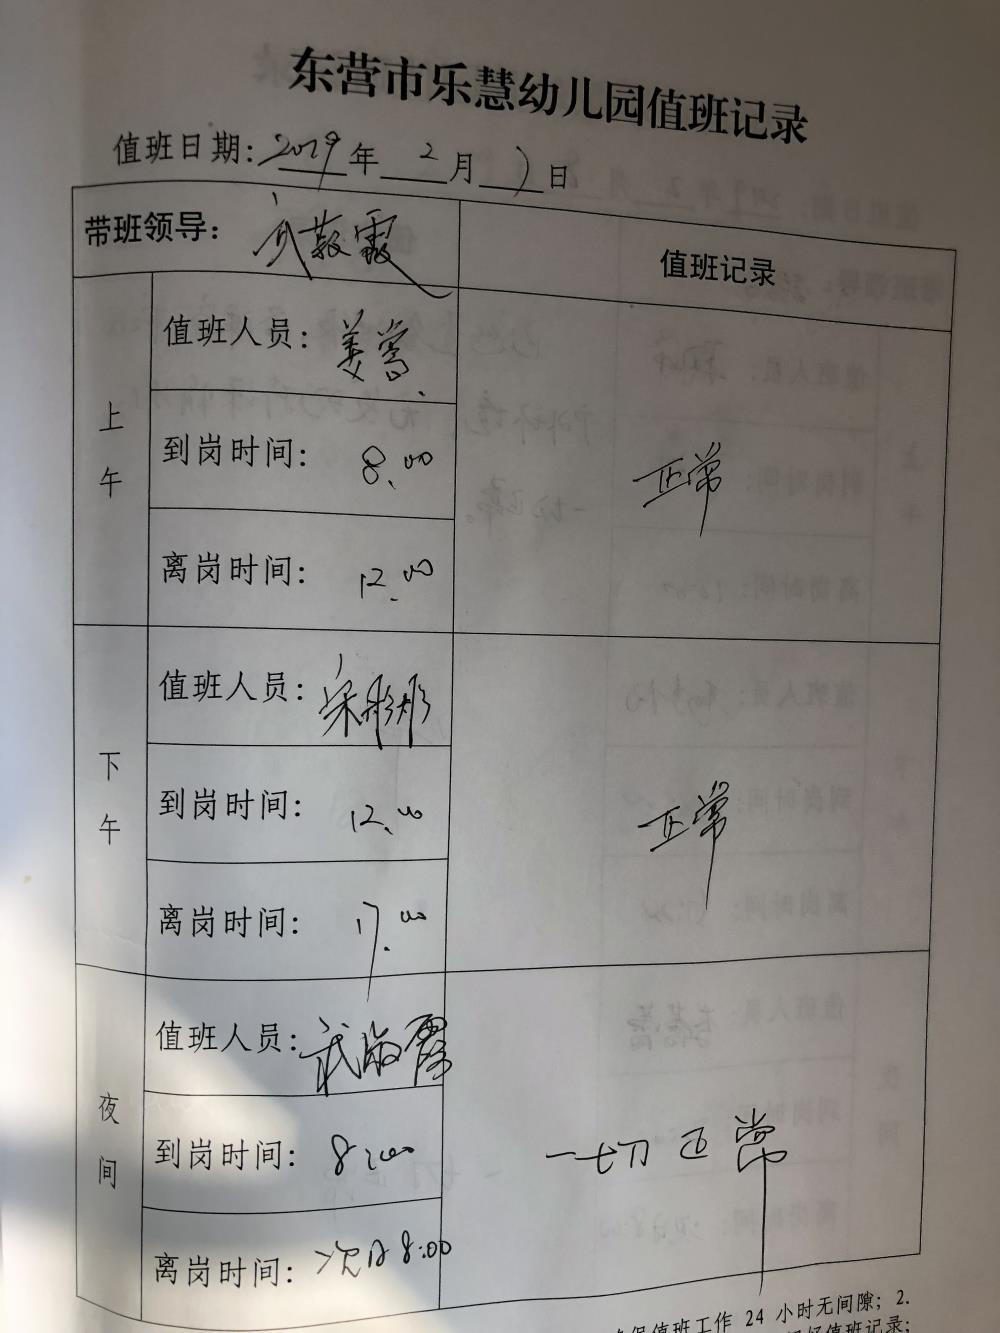 东营市乐慧幼儿园值班记录
值班日期：2019年2月7日
带班领导：
值班记录
上午
值班人员：姜莺
到岗时间：8.00
离岗时间：12.00
正常
下午
值班人员：宋彤彤
到岗时间：12.00
离岗时间：17.00
正常
夜间
值班人员：武敬霞
到岗时间：8:00
离岗时间：次日8:00
一切正常
保值班工作 24 小时无间隙；2.
好值班记录；